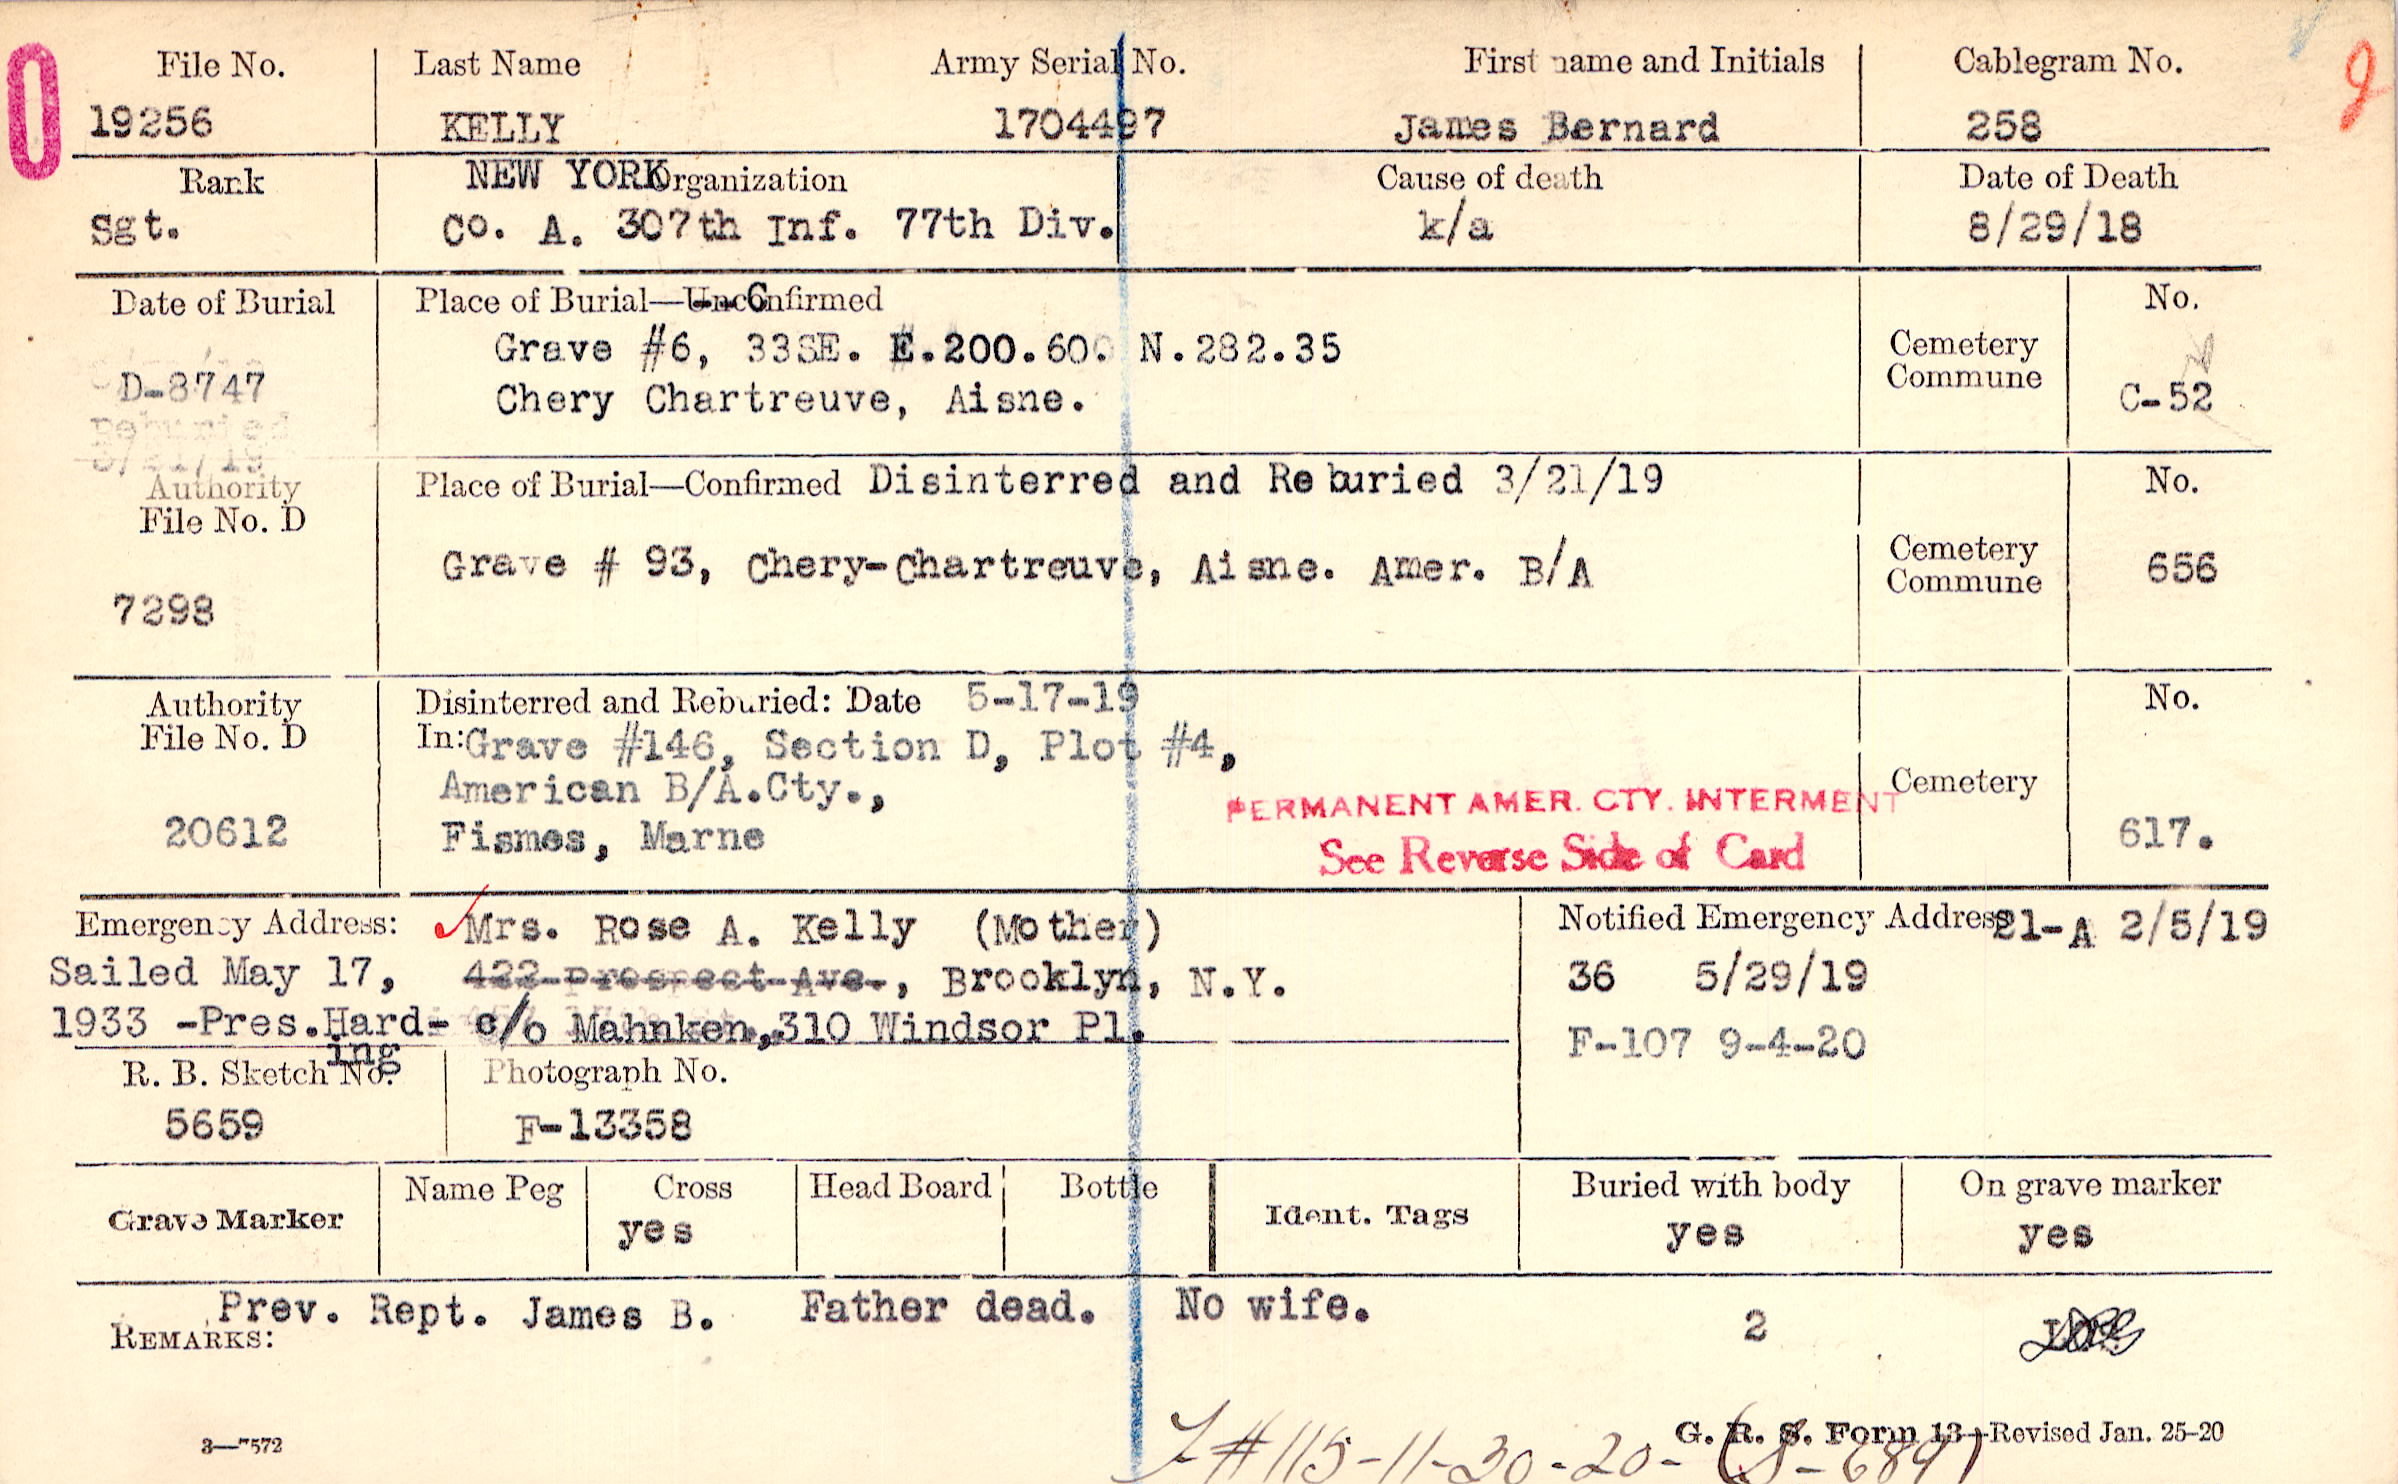 0
File No. Last Name Army Serial No. First name and Initials Cablegram No.
19256 KELLY 1704497 James Bernard 258
Rank NEW YORK Organization Cause of death Date of Death
Sgt. Co. A. 307th Inf. 77th Div. k/a 8/29/18
Date of Burial Place of Burial—Unconfirmed No.
Grave #6, 33SE. E.200.60. N.282.35 Cemetery
D-8747 Commune
Chery Chartreuve, Aisne. C-52
Reburied
3/21/19
Place of Burial—Confirmed Disinterred and Reburied 3/21/19 No.
Authority
File No. D
Grave # 93, Chery-Chartreuve, Aisne. Amer. B/A Cemetery 656
Commune
7298
Authority Disinterred and Reburied: Date 5-17-19 No.
File No. D In: Grave #146, Section D, Plot #4,
American B/A.Cty., Cemetery
PERMANENT AMER. CTY. INTERMENT
20612 Fismes, Marne 617.
See Reverse Side of Card
Emergency Address: Mrs. Rose A. Kelly (Mother) Notified Emergency Address 21-A 2/5/19
Sailed May 17, 422 Prospect Ave., Brooklyn, N.Y. 36 5/29/19
1933 -Pres.Hard- c/o Mahnken, 310 Windsor Pl. F-107 9-4-20
ing
R. B. Sketch No. Photograph No.
5659 F-13358
Grave Marker Name Peg Cross Head Board Bottle Ident. Tags Buried with body On grave marker
yes yes yes
Prev. Rept. James B. Father dead. No wife. 2
REMARKS:
3—7572 G. R. S. Form 13—Revised Jan. 25-20
#115-11-30-20-